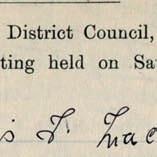 District Council,
ting held on Sa
is F. Mac